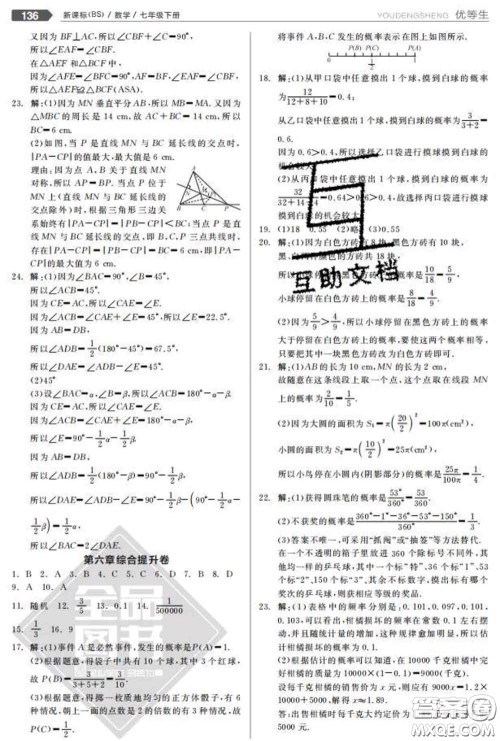 136 新课标(BS)/数学/七年级下册
YOUDENGSHENG 优等生
又因为BF⊥AC,所以∠CBF+∠C=90°,
所以∠EAF=∠CBF.
在△AEF和△BCF中,
因为∠AFE=∠BFC=90°,AF=BF,∠EAF=∠CBF,
所以△AEF≌△BCF(ASA).
23. 解:(1)因为MN垂直平分AB,所以MB=MA.又因为
△MBC的周长是14 cm,故AC+BC=14 cm,所以
BC=6 cm.
(2)如图,当P是直线MN与BC延长线的交点时,
|PA-CP|的值最大,最大值是6 cm.
理由:因为点A,B关于直线MN
对称,所以AP=BP.当点P位于
MN上(直线MN与BC延长线的
交点除外)时,根据三角形三边关
系始终有|PA-CP|=|PB-CP|<BC;当点P是直
线MN与BC延长线的交点,即B,C,P三点共线时,
存在|PA-CP|=|PB-CP|=BC=6 cm,即|PA-
CP|的最大值为6 cm.
24. 解:(1)因为∠BAC=90°,∠B=45°,
所以∠ACB=45°.
因为CE=AC,所以∠CAE=∠E.
因为∠ACB=∠CAE+∠E=45°,所以∠E=22.5°.
因为AB=DB,
所以∠ADB=1/2(180°-45°)=67.5°,
所以∠DAE=∠ADB-∠E=45°.
(2)45°
(3)设∠BAC=α,∠B=β,所以∠ACB=180°-α-β.
因为CE=AC,所以∠CAE=∠E.
因为∠ACB=∠CAE+∠E=180°-α-β,
所以∠E=90°-1/2α-1/2β.
因为AB=DB,
所以∠ADB=1/2(180°-β)=90°-1/2β,
所以∠DAE=∠ADB-∠E=90°-1/2β-(90°-1/2α-
1/2β)=1/2α,
所以∠BAC=2∠DAE.
第六章综合提升卷
1. B 2. A 3. B 4. C 5. C 6. D 7. B 8. D
9. A 10. A
11. 随机 12. 3/5 13. 0.1 14. 1/500000
15. 1/3 16. 9
17. 解:(1)事件A是必然事件,发生的概率是P(A)=1.
(2)根据题意,得袋子中共有10个球,其中3个红球,
故P(B)=3/(3+5+2)=3/10.
(3)根据题意,得掷一枚质地均匀的正方体骰子,有6
种情况,朝上一面的点数是2的倍数的有3种情况,故
P(C)=1/2.
将事件A,B,C发生的概率表示在图上如图所示.
18. 解:(1)从甲口袋中任意摸出1个球,摸到白球的概率
为12/(12+8+10)=0.4;
从乙口袋中任意摸出1个球,摸到白球的概率为3/(3+2)=
0.6.
因为0.6>0.4,所以选择乙口袋进行摸球摸到白球的
机会较大.
(2)从丙口袋中任意摸出1个球,摸到白球的概率为
32/(32+14+4)=0.64>0.6>0.4,故选择丙口袋进行摸球
摸到白球的机会较大.
19. (1)18 0.55 (2)略 (3)0.55
20. 解:(1)因为白色方砖有8块,黑色方砖有10块,
黑、白方砖共18块,
所以小球停留在黑色方砖上的概率是10/18=5/9,
小球停留在白色方砖上的概率是8/18=4/9.
(2)因为5/9>4/9,所以小球停留在黑色方砖上的概率
大于停留在白色方砖上的概率,要使这两个概率相等,
只要把其中一块黑色方砖改为白色方砖即可.
21. 解:(1)AB的长为10 cm,MN的长为2 cm,
故随意在这条线段上取一个点,这个点取在线段MN
上的概率为2/10=1/5.
(2)因为大圆的面积为S₁=π(20/2)²=100π(cm²),
小圆的面积为S₂=π(10/2)²=25π(cm²),
所以小鸟停在小圆内(阴影部分)的概率是25π/100π=1/4.
22. 解:(1)获得圆珠笔的概率为53°/360°=53/360.
(2)不获奖的概率是(360°-1°-36°-53°-150°)/360°=1/3.
(3)答案不唯一,可采用“抓阄”或“抽签”等方法替代.
在一个不透明的箱子里放进360个除标号不同外,其
他均一样的乒乓球,其中一个标“特”,36个标“1”,53
个标“2”,150个标“3”,其余不标数字,摸出标有哪个
奖次的乒乓球,则获相应等级的奖品.
23. 解:(1)表格中的频率分别是:0.101,0.097,0.101,
0.103,可以看出,柑橘损坏的频率在常数0.1左右摆
动,并且随统计量的增加,这种规律愈加明显,所以估
计柑橘损坏的概率为0.1.
(2)根据估计的概率可以知道,在10000千克柑橘中完
好柑橘的质量为10000×(1-0.1)=9000(千克).
设每千克柑橘的销售价为x元,则应有9000x=1.2×
10000+5000,解得x≈1.89.
答:出售柑橘时每千克大约定价为
5000元.
互助文档